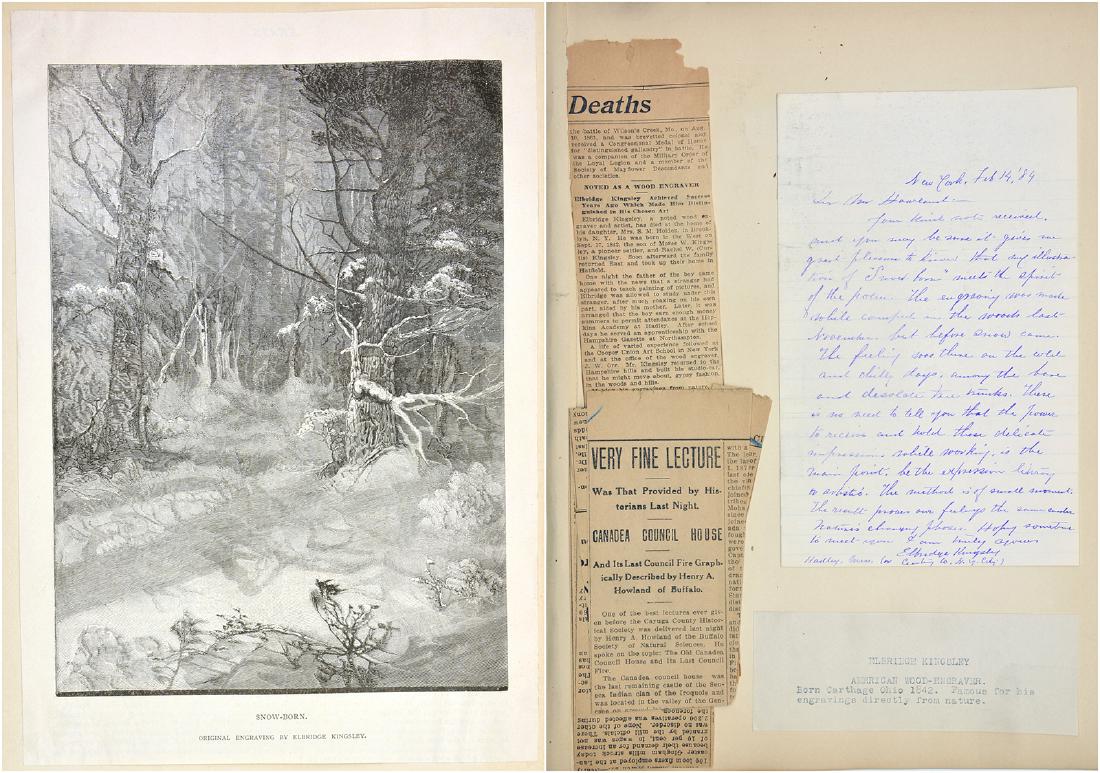 SNOW-BORN.
ORIGINAL ENGRAVING BY ELBRIDGE KINGSLEY.
Deaths
the battle of Wilson's Creek, Mo., on Aug.
10, 1861, and was brevetted colonel and
received a Congressional Medal of Honor
for "distinguished gallantry" in battle. He
was a companion of the Military Order of
the Loyal Legion and a member of the
Society of Mayflower Descendants and
other societies.
NOTED AS A WOOD ENGRAVER
Elbridge Kingsley Achieved Success
Years Ago Which Made Him Distin-
guished in His Chosen Art
Elbridge Kingsley, a noted wood en-
graver and artist, has died at the home of
his daughter, Mrs. S. M. Holden, in Brook-
lyn, N. Y. He was born in the West on
Sept. 17, 1842, the son of Moses W. Kings-
ley, a pioneer settler, and Rachel W. (Cur-
tis) Kingsley. Soon afterward the family
returned East and took up their home in
Hatfield.
One night the father of the boy came
home with the news that a stranger had
appeared to teach painting of pictures, and
Elbridge was allowed to study under this
stranger, after much coaxing on his own
part, aided by his mother. Later, it was
arranged that the boy earn enough money
summers to permit attendance at the Hop-
kins Academy at Hadley. After school
days he served an apprenticeship with the
Hampshire Gazette at Northampton.
A life of varied experience followed at
the Cooper Union Art School in New York
and at the office of the wood engraver,
J. W. Orr. Mr. Kingsley returned to the
Hampshire hills and built his studio-car,
that he might move about, gypsy fashion,
in the woods and hills.
VERY FINE LECTURE
Was That Provided by His-
torians Last Night.
CANADEA COUNCIL HOUSE
And Its Last Council Fire Graph-
ically Described by Henry A.
Howland of Buffalo.
One of the best lectures ever giv-
en before the Cayuga County Histor-
ical Society was delivered last night
by Henry A. Howland of the Buffalo
Society of Natural Sciences. He
spoke on the topic: The Old Canadea
Council House and Its Last Council
Fire.
The Canadea council house was
the last remaining castle of the Sen-
eca Indian clan of the Iroquois and
was located in the valley of the Gen-
New York, Feb 14, '84
Mr Howland
Your kind note received,
and you may be sure it gives me
great pleasure to know that my illustra-
tion of "Snow born" meets the spirit
of the poem. The engraving was made
while camped in the woods last
November, but before snow came.
The feeling was there in the cold
and chilly days, among the bare
and desolate tree trunks. There
is no need to tell you that the power
to receive and hold these delicate
impressions while working, is the
main point, be the expression literary
or artistic. The method is of small moment.
The result proves our feelings the same under
Nature's changing phases. Hoping sometime
to meet you I am truly yours
Elbridge Kingsley
Hadley, Mass. (or Century Co. N. Y. City)
ELBRIDGE KINGSLEY
AMERICAN WOOD-ENGRAVER.
Born Carthage Ohio 1842. Famous for his
engravings directly from nature.